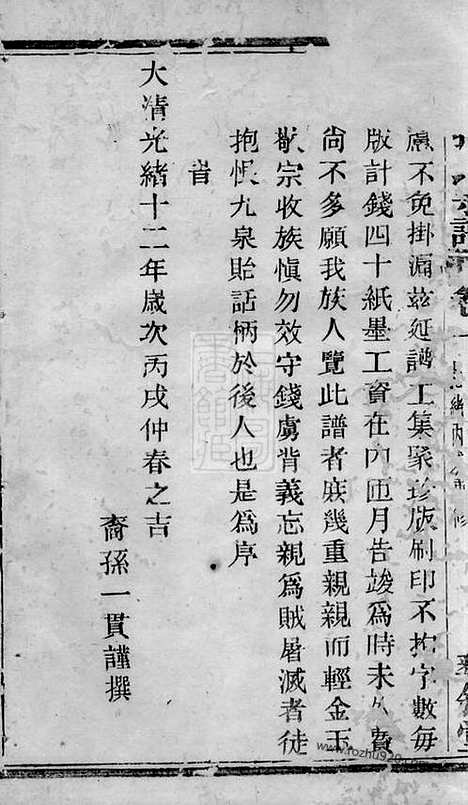 處不免掛漏茲延譜工集聚珍版刷印不拘字數每
版計錢四十紙墨工資在內匝月告竣為時未久費
尚不多願我族人覽此譜者庻幾重親親而輕金玉
敬宗收族慎勿效守錢虜背義忘親為賊屠滅者徒
抱恨九泉貽話柄於後人也是為序
旹
大清光緒十二年歲次丙戌仲春之吉
裔孫一貫謹撰